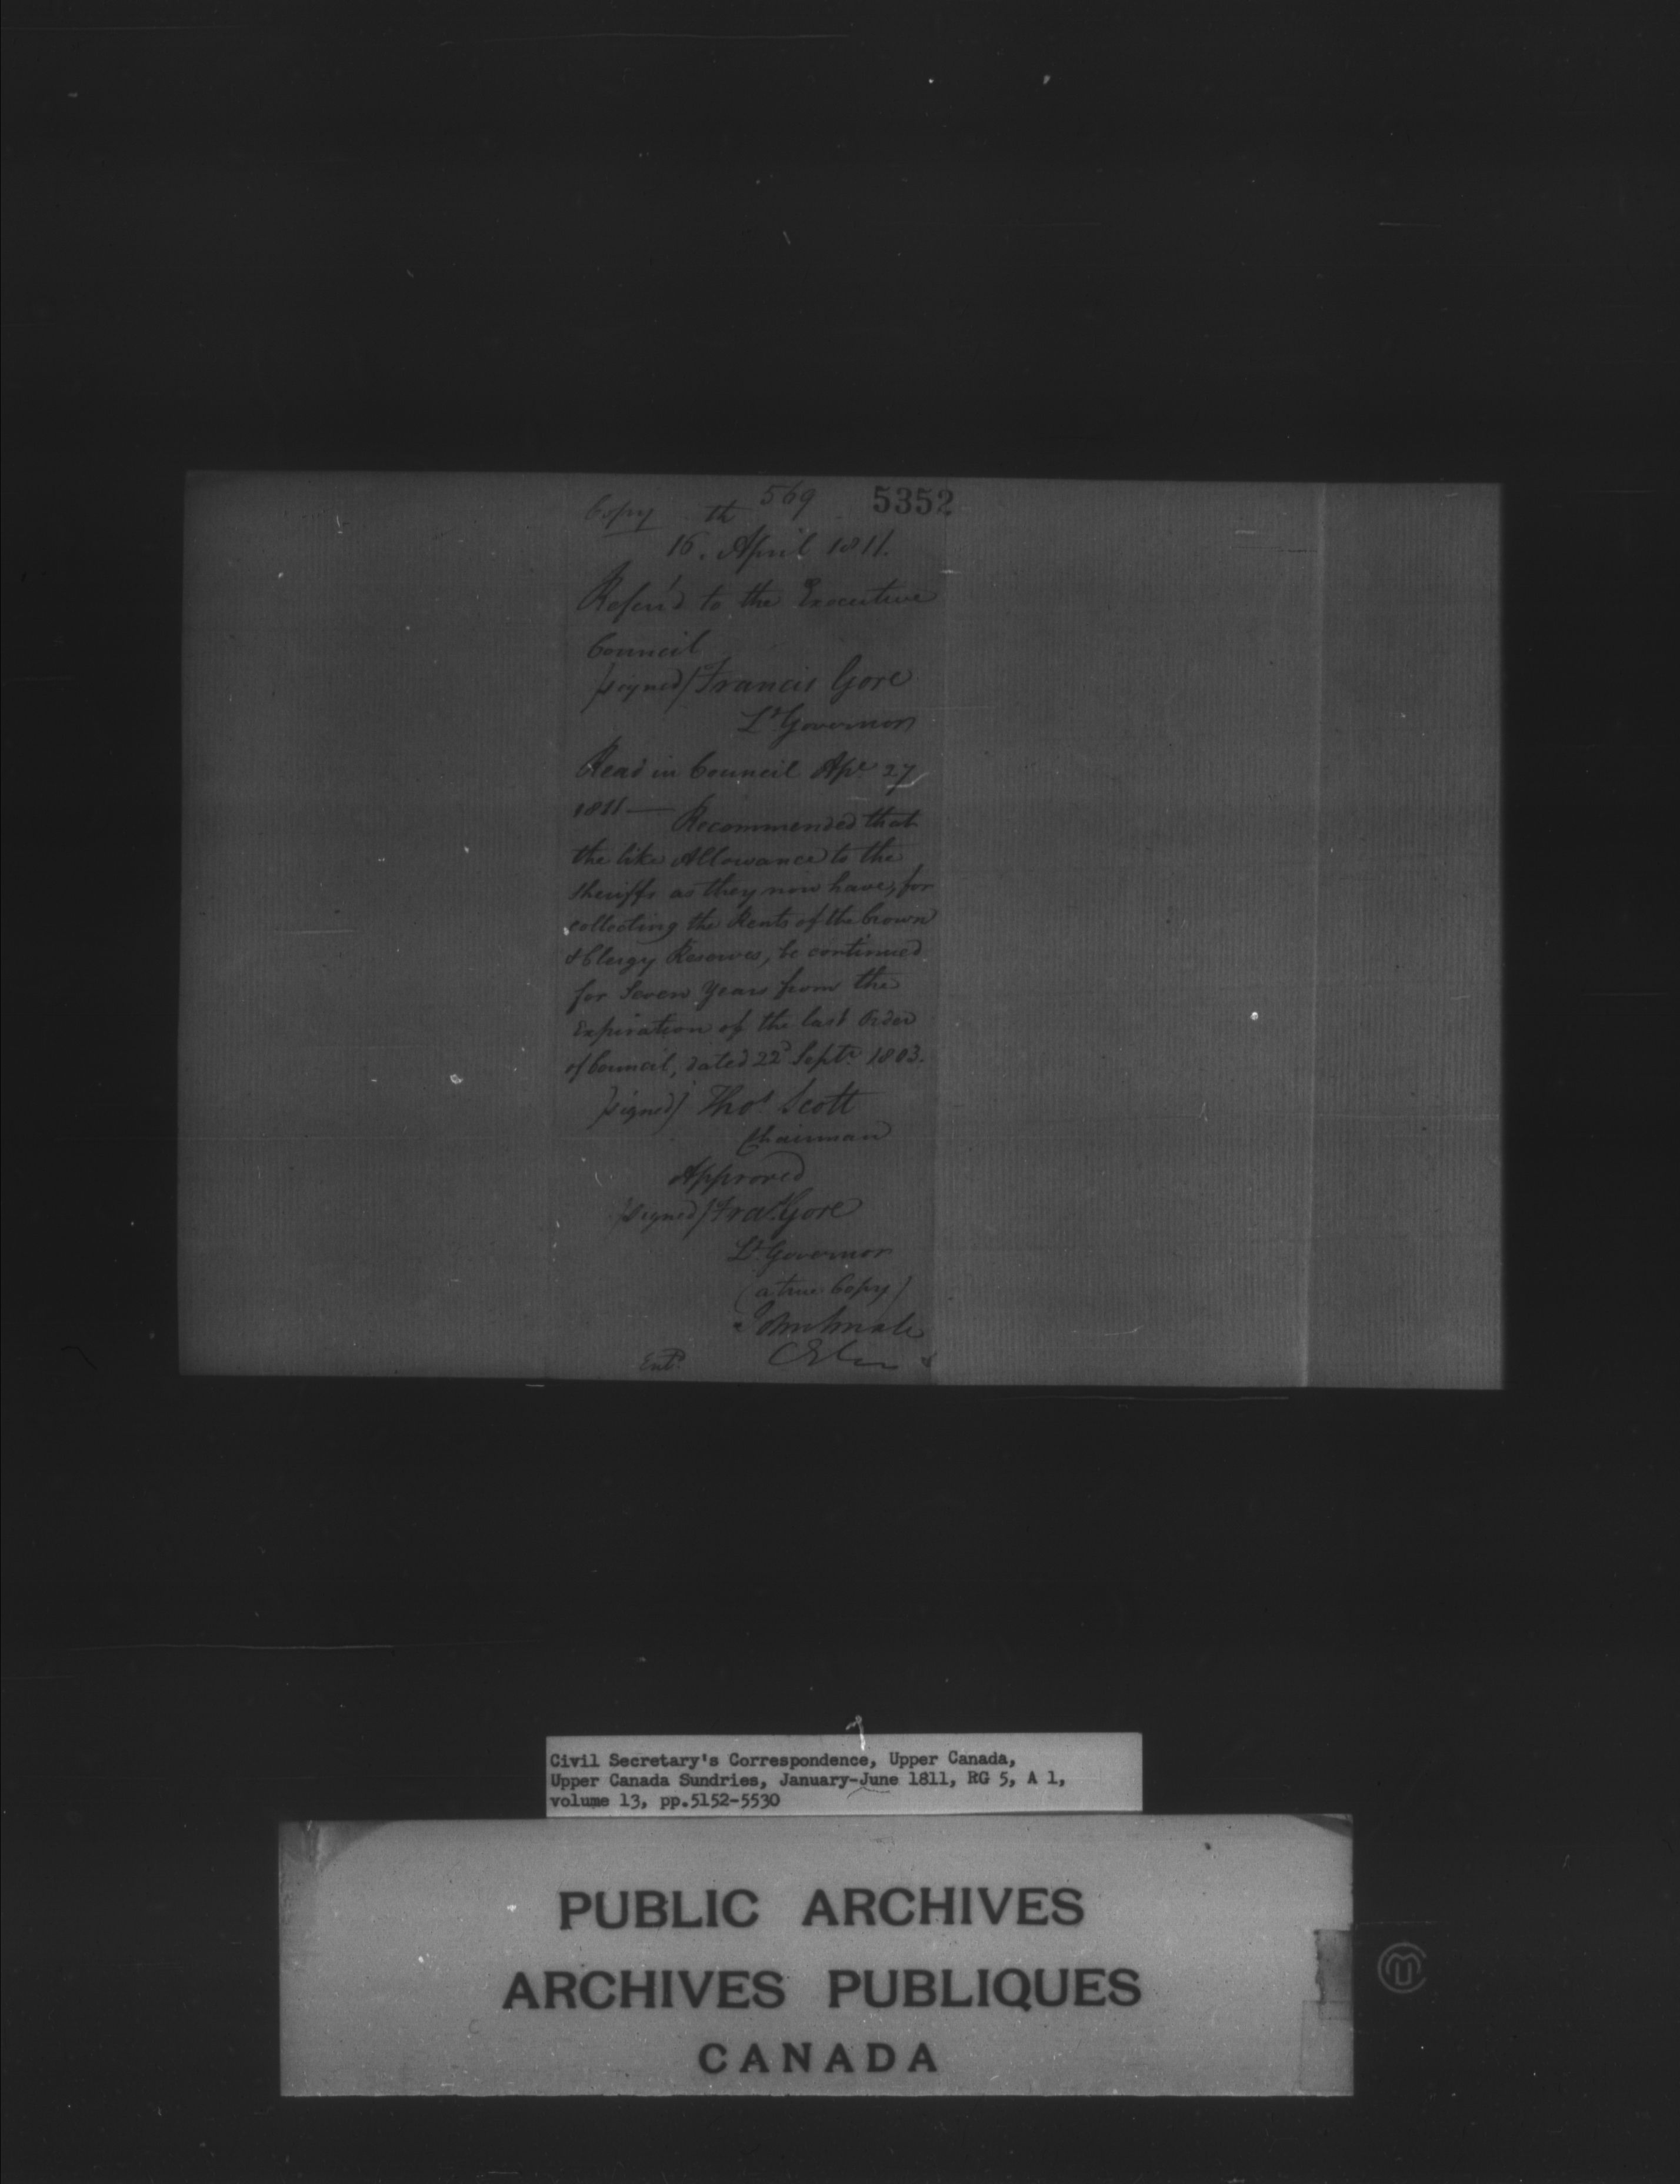 569 5352
Copy
16.th April 1811.
Refer'd to the Executive
Council
/signed/ Francis Gore
Lt Governor
Read in Council Apl 27
1811 — Recommended that
the like Allowance to the
Sheriffs as they now have, for
collecting the Rents of the Crown
& Clergy Reserves, be continued
for Seven Years from the
Expiration of the last Order
of Council, dated 22d Septr 1803.
/signed/ Thos Scott
Chairman
Approved
/signed/ Fras Gore
Lt Governor
(a true Copy)
John Small
Entd
Civil Secretary's Correspondence, Upper Canada,
Upper Canada Sundries, January-June 1811, RG 5, A 1,
volume 13, pp.5152-5530
PUBLIC ARCHIVES
ARCHIVES PUBLIQUES
CANADA